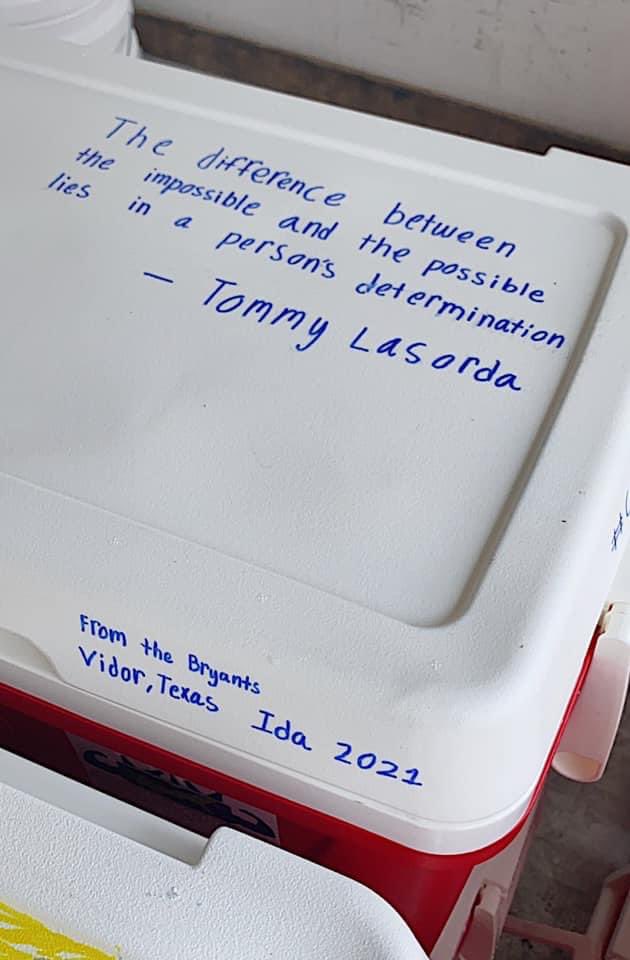 The difference between
the impossible and the possible
lies in a person's determination
— Tommy Lasorda
From the Bryants
Vidor, Texas Ida 2021